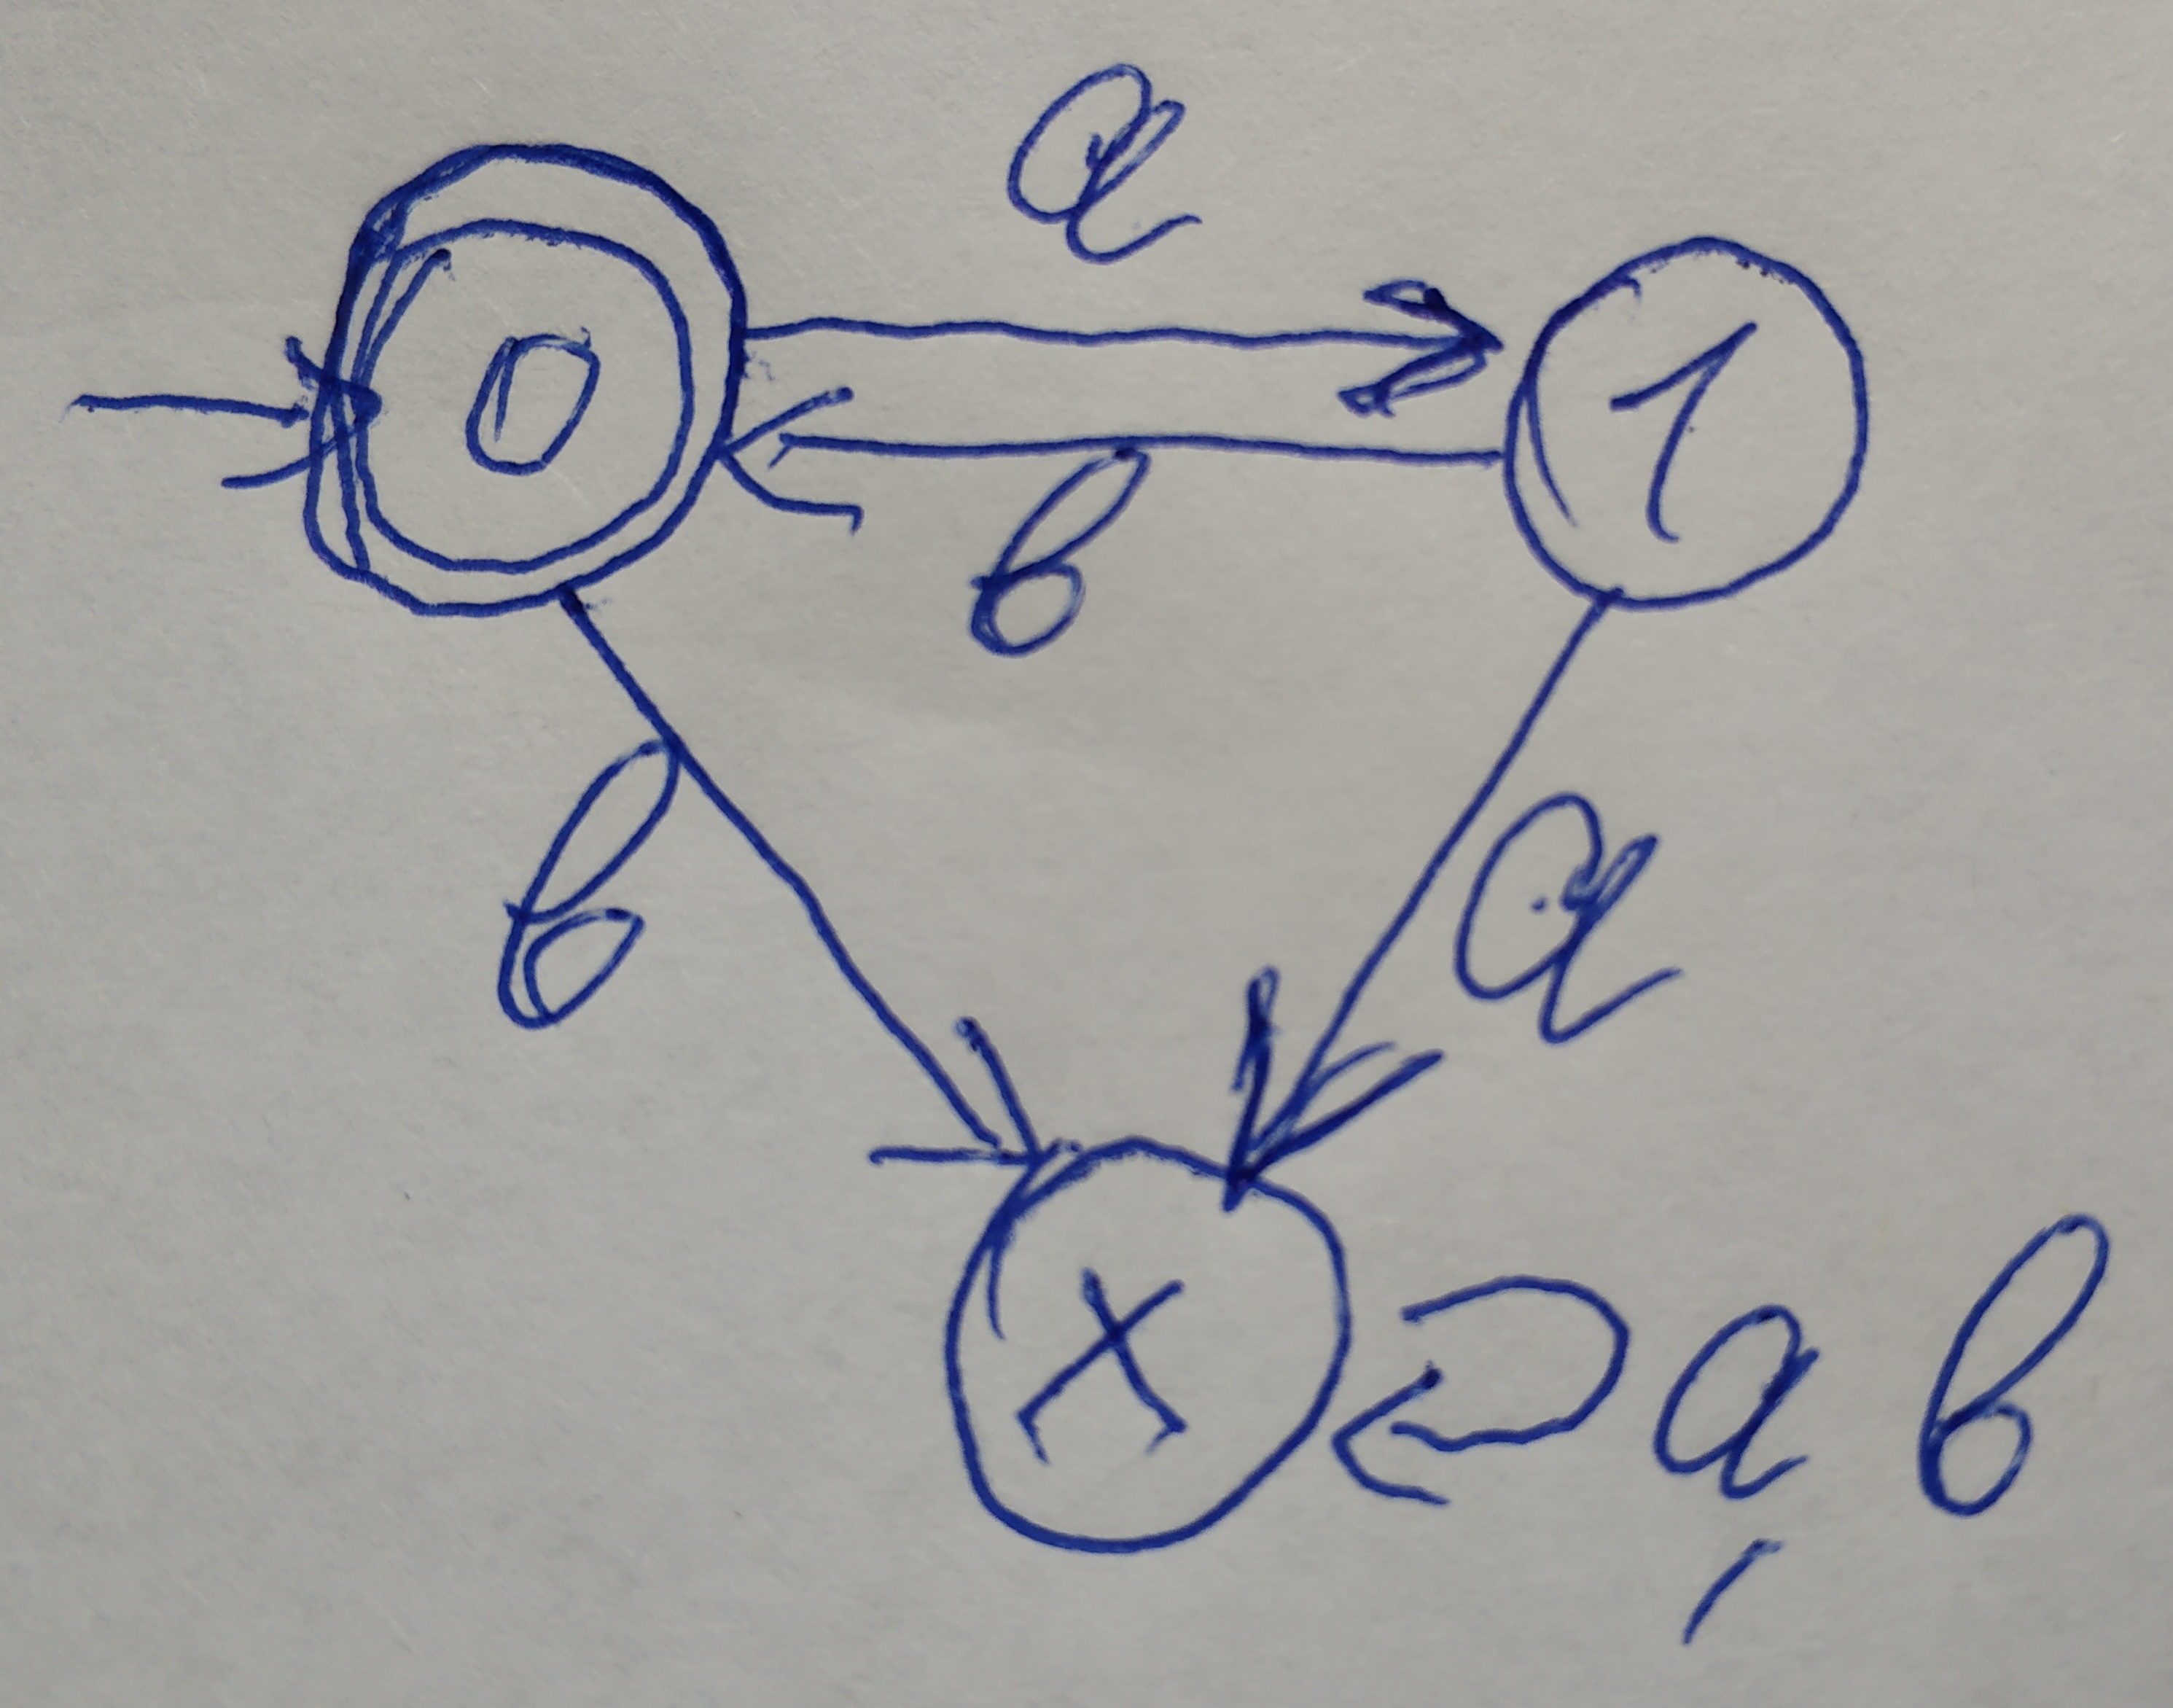 a
0
1
b
b
a
x
a, b